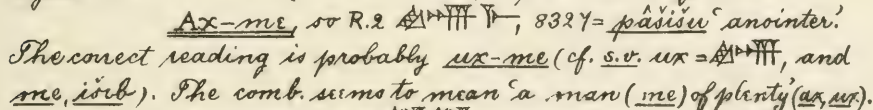 Ax-me, so R.2 𒈨, 8327 = pâšišu 'anointer.'
The correct reading is probably ux-me (cf. s.v. ux = , and
me, išib). The comb. seems to mean 'a man (me) of plenty' (ax, ux).